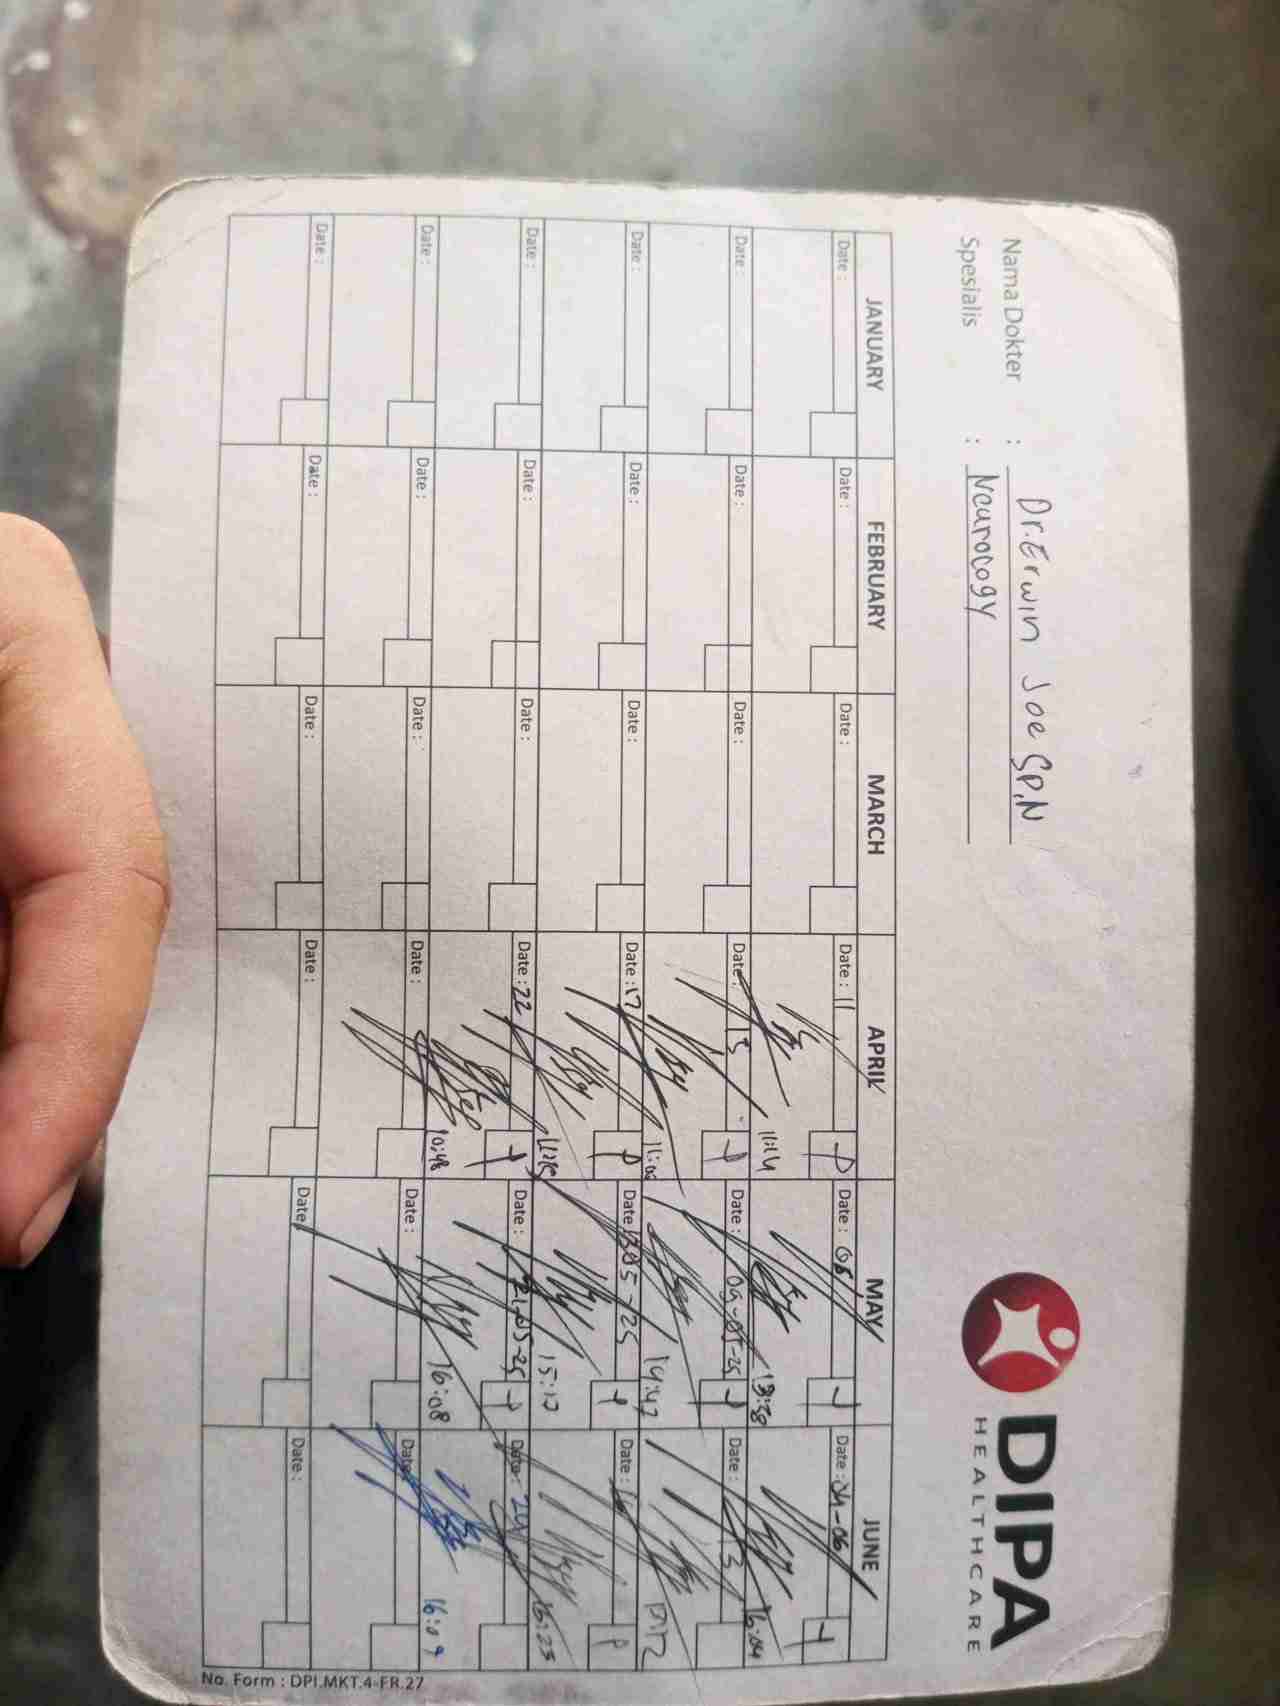 DIPA
HEALTHCARE
Nama Dokter : Dr. Erwin Joe SP.N
Spesialis : Neurology
JANUARY FEBRUARY MARCH APRIL MAY JUNE
Date : Date : Date : Date : 11 Date : 08 Date : 04-06
11:14 13:38 16:04
Date : Date : Date : Date : 15 Date : 09-05-25 Date : 13
14:47
Date : Date : Date : Date : 17 Date : Date :
15:17 16:23
Date : Date : Date : Date : 22 Date : 21-05-25 Date : 24
10:48 16:08 16:09
Date : Date : Date : Date : Date : Date
Date : Date : Date : Date : Date Date :
No. Form : DPI.MKT.4-FR.27